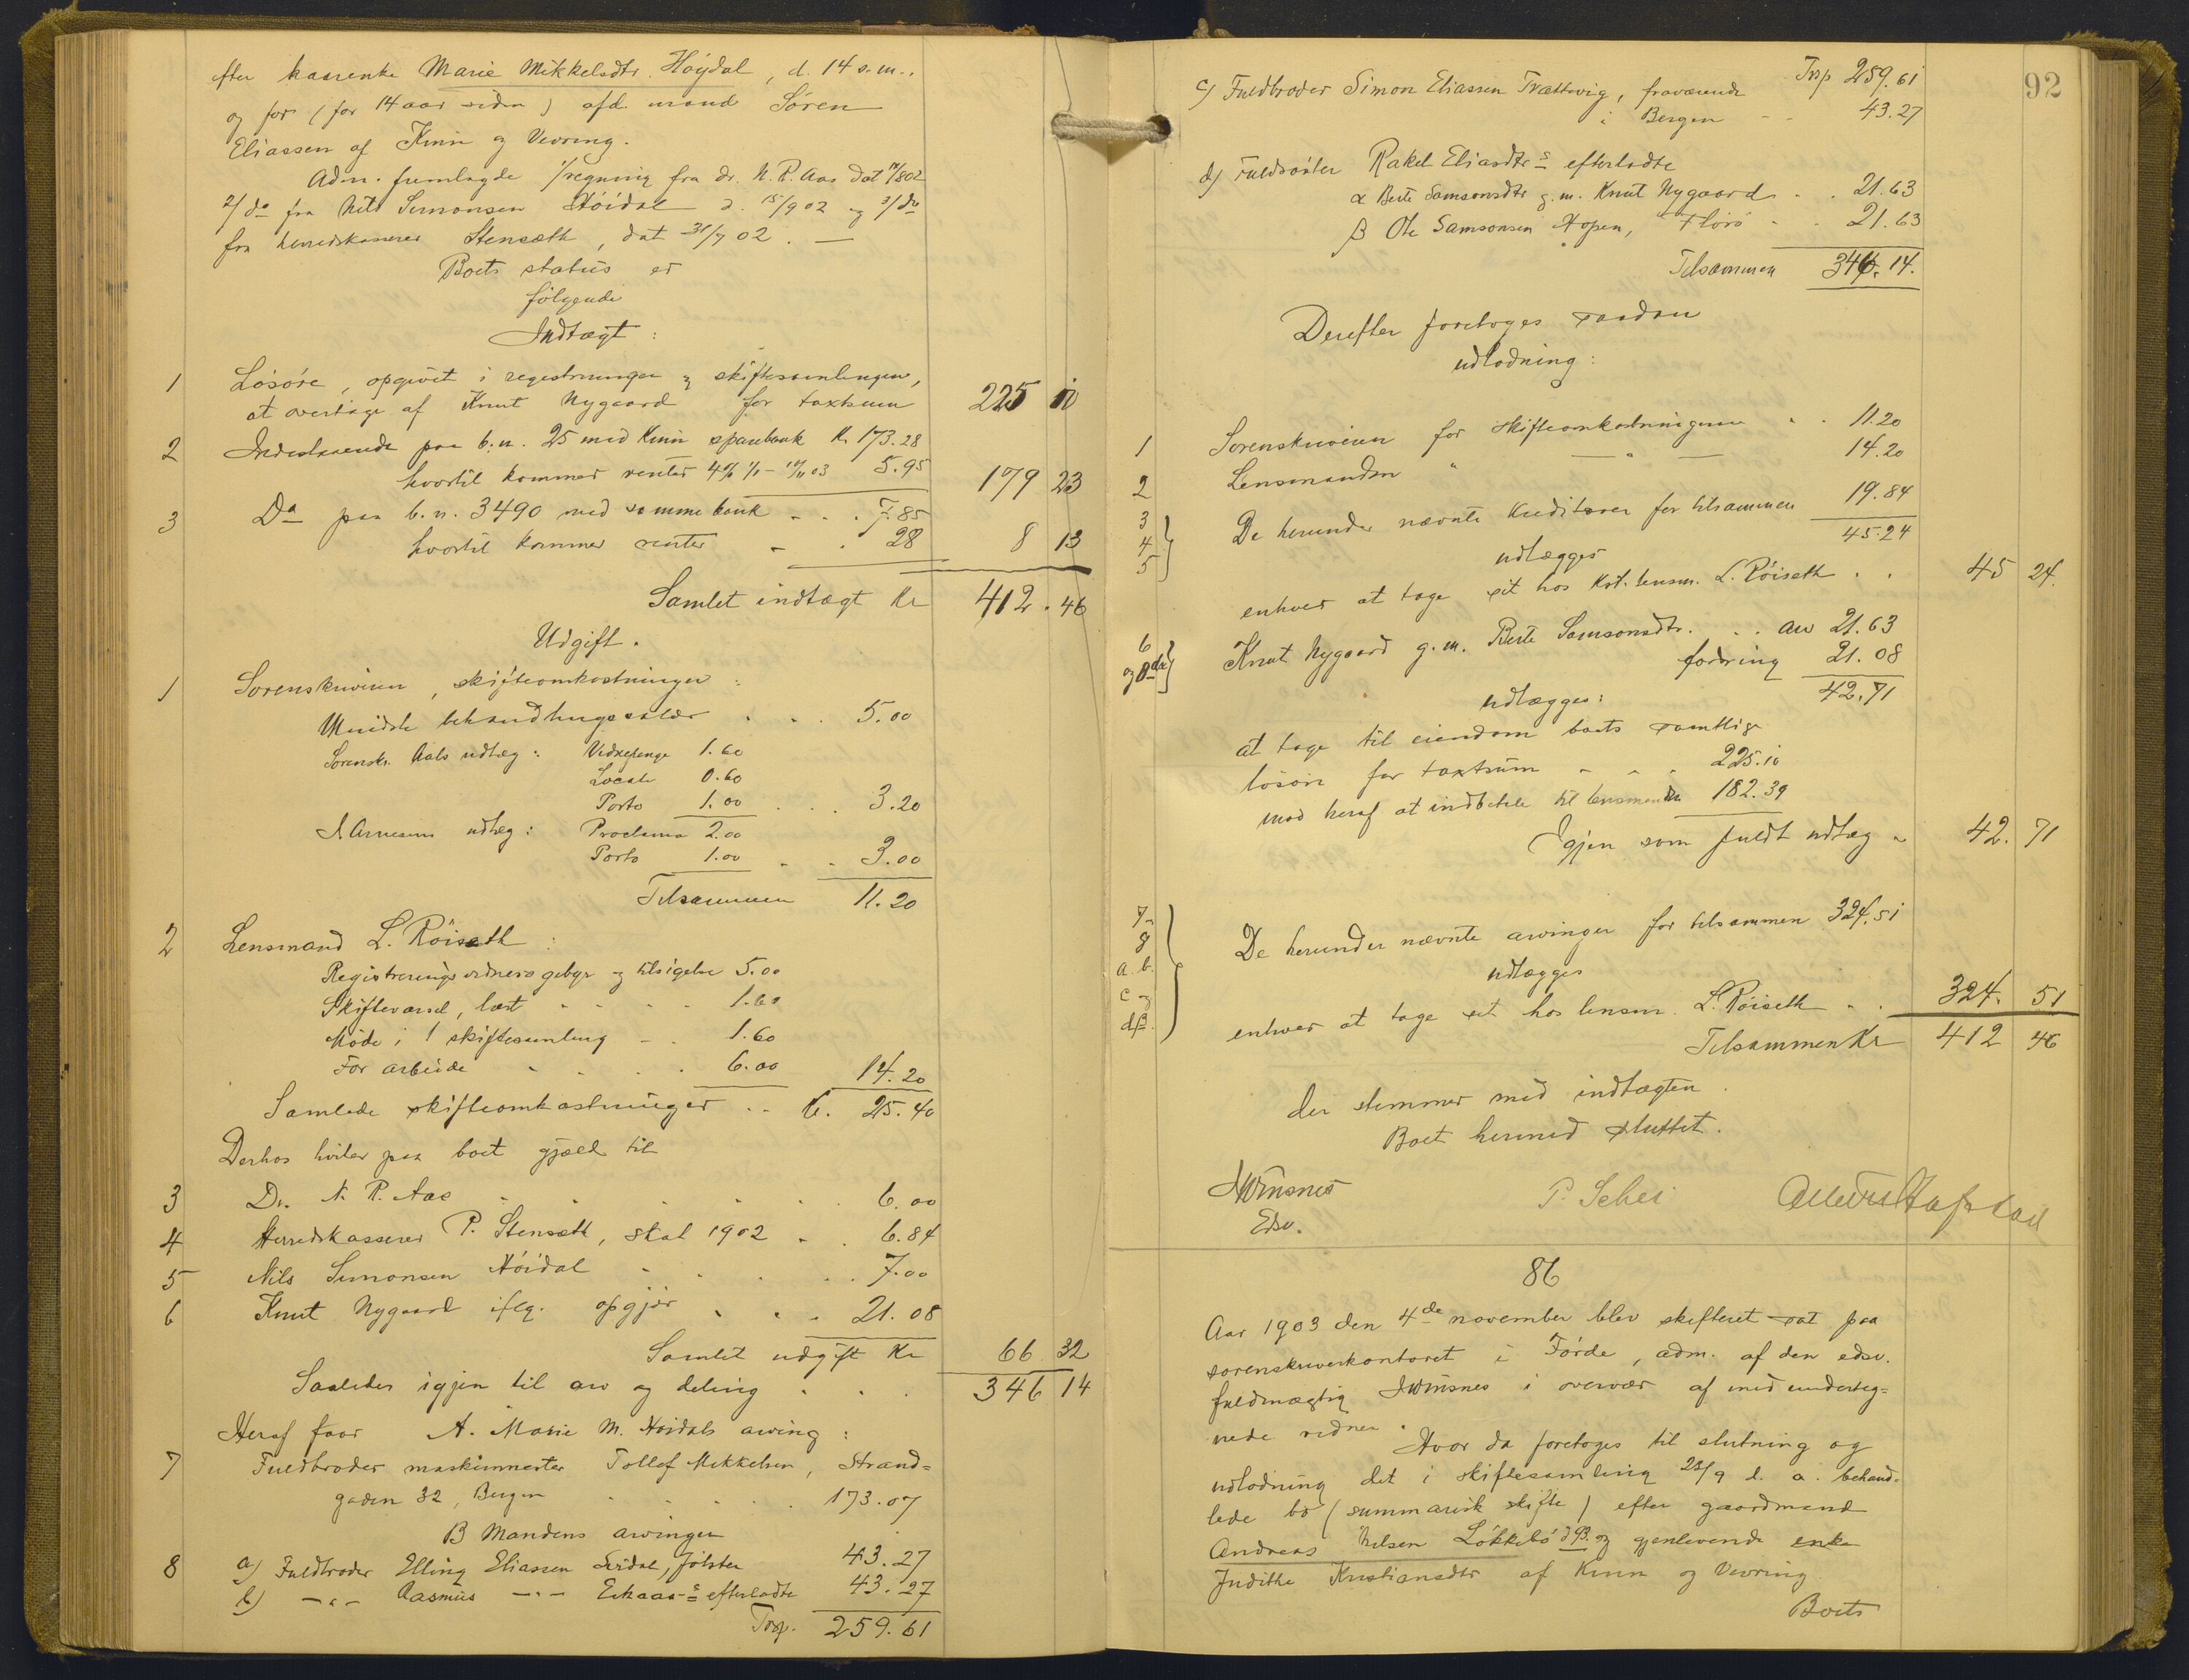 efter kaarenke Marie Mikkelsdtr. Høydal, d. 14 s.m.,
og for (for 14 aar siden) afd. mand Søren
Eliassen af Kinn og Vevring.
Adm. fremlagde 1/ regning fra dr. N. P. Aas dat 14/8 02
2/ do fra Nils Simonsen Høidal d. 15/9 02 og 3/ do
fra herredskasserer Stensæth, dat 31/7 02. —
Boets status er
følgende
Indtægt:
1 Løsøre, opgivet i registreringen og skiftesamlingen,
at overtage af Knut Nygaard for taxtsum 225 10
2 Indestaaende paa b.n. 25 med Kinn sparebank Kr. 173.28
hvortil kommer renter 4% 1/1 - 10/11 03 5.95 179 23
3 Do paa b.n. 3490 med samme bank . . . 7.85
hvortil kommer renter - . 28 8 13
Samlet indtægt Kr 412.46
Udgift.
1 Sorenskriveren, skifteomkostninger:
Mindste behandlingssalær . . . 5.00
Sorenskr. Aals udlæg: Vidnepenge 1.60
Locale 0.60
Porto 1.00 . . . 3.20
A. Arnesens udlæg: Proclama 2.00
Porto 1.00 - - 3.00
Tilsammen 11.20
2 Lensmand L. Røiseth:
Registreringsvidners gebyr og tilsigelse 5.00
Skiftevarsel, læst - - - - 1.60
Møde i 1 skiftesamling - - 1.60
For arbeide - - - - 6.00 14.20
Samlede skifteomkostninger . . Kr. 25.40
Derhos hviler paa boet gjæld til
3 Dr. N. P. Aas - - - - 6.00
4 Herredskasserer P. Stensæth, skat 1902 - . 6.84
5 Nils Simonsen Høidal - - . . . 7.00
6 Knut Nygaard iflg. opgjør . . . 21.08
Samlet udgift Kr 66 32
Saaledes igjen til arv og deling . . . 346 14
Heraf faar A. Marie M. Høidals arving:
7 Fuldbroder maskinmester Tollef Mikkelsen, Strand=
gaden 32, Bergen . . . . . 173.07
B Mandens arvinger
8 a) Fuldbroder Elling Eliassen Årdal, Jølster 43.27
b) -"- Rasmus -"- Eikaas's efterladte 43.27
Trsp. 259.61
92
Trsp 259.61
c) Fuldbroder Simon Eliassen Trættevig, fraværende
i Bergen - - 43.27
d) Fuldsøster Rakel Eliasdtrs efterladte
α Berte Samsonsdtr g.m. Knut Nygaard . . 21.63
β Ole Samsonsen Hopen, Florø . . 21.63
Tilsammen 346.14.
Derefter foretoges saadan
udlodning:
1 Sorenskriveren for skifteomkostningerne . . 11.20
2 Lensmanden " — " — 14.20
3
4
5 De herunder nævnte kreditorer for tilsammen 19.84
45.24
udlægges
enhver at tage sit hos kst. lensm. L. Røiseth . . 45 24.
6
og 8dα Knut Nygaard g.m. Berte Samsonsdtr. . . arv 21.63
fordring 21.08
42.71
udlægges:
at tage til eiendom boets samtlige
løsøre for taxtsum - - - 225.10
mod heraf at indbetale til lensmanden 182.39
Igjen som fuldt udlæg - 42. 71
7.
8
a. b.
c og
dβ. De herunder nævnte arvinger for tilsammen 324.51
udlægges
enhver at tage sit hos lensm. L. Røiseth . . 324. 51
Tilsammen Kr 412 46
der stemmer med indtægten.
Boet hermed sluttet.
P. Schei
Edsv.
86
Aar 1903 den 4de november blev skifteret sat paa
sorenskriverkontoret i Førde, adm. af den edsv.
fuldmægtig i overvær af medunderteg=
nede vidner.
Hvor da foretoges til slutning og
udlodning det i skiftesamling 23/9 d. a. behand=
lede bo (summarisk skifte) efter gaardmand
Andreas Nilsen Løkkebø d 93. og gjenlevende enke
Judithe Kristiansdtr af Kinn og Vevring.
Boets